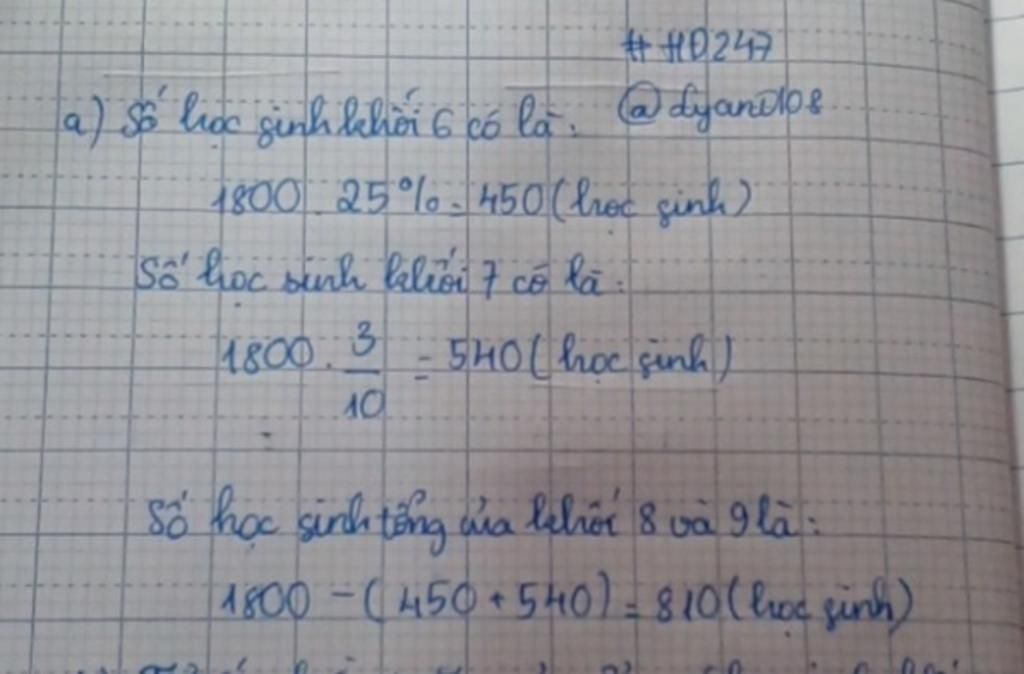 # HD247
@dyand108
a) Số học sinh khối 6 có là:
1800 . 25% = 450 (học sinh)
Số học sinh khối 7 có là:
1800 . 3/10 = 540 (học sinh)
Số học sinh tổng của khối 8 và 9 là:
1800 - (450 + 540) = 810 (học sinh)